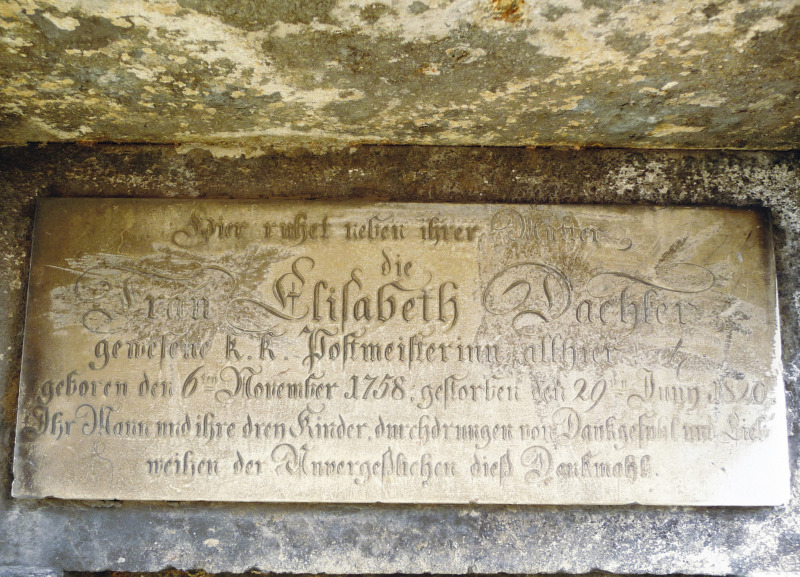 Hier ruhet neben ihrer Mutter
die
Frau Elisabeth Dachler
gewesene k. k. Postmeisterinn allhier
geboren den 6ten November 1758, gestorben den 29ten Juny 1820
Ihr Mann und ihre drey Kinder, durchdrungen von Dankgefühl und Lieb
weihen der Unvergeßlichen dieß Denkmahl.